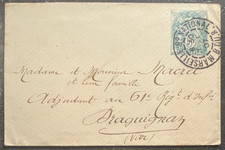 MARSEILLE
Madame et Monsieur Maurel
et leur famille
Adjudant au 61e Régt d'Infie
Draguignan
(Var)